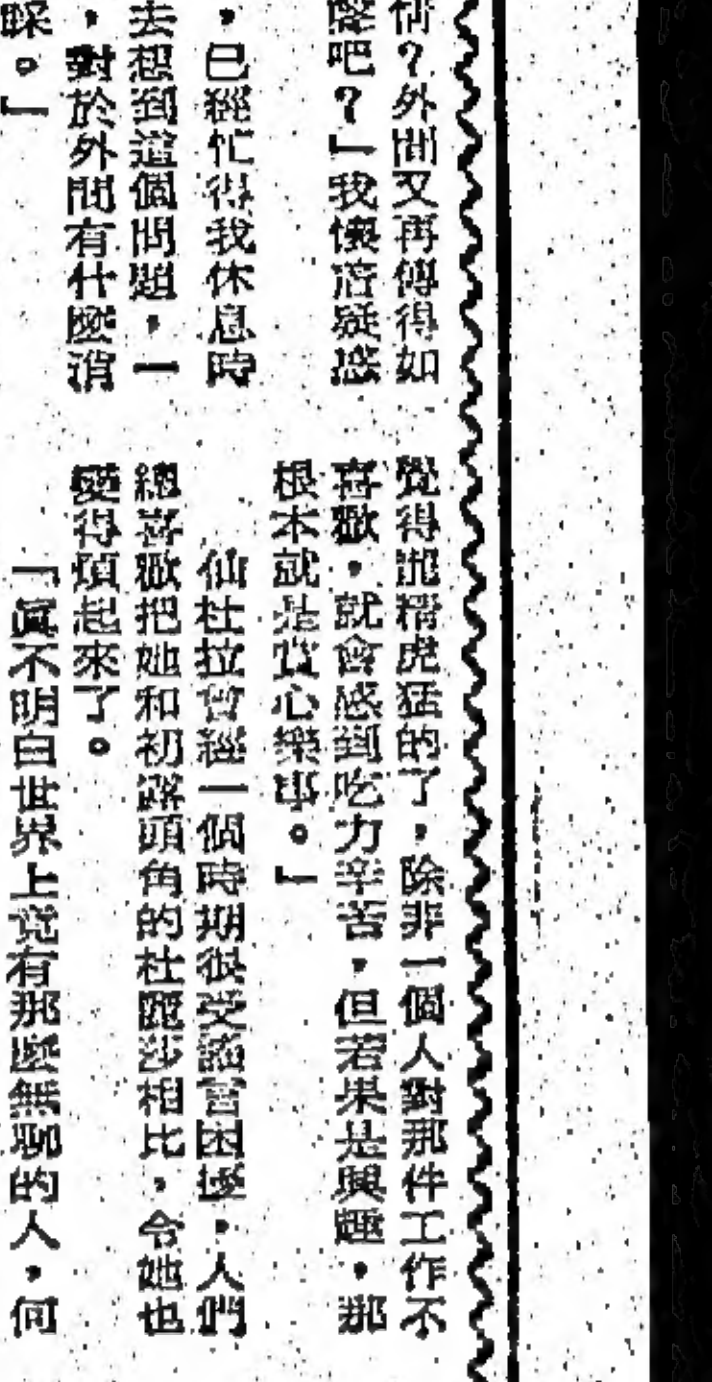 情？外間又再傳得如
聲吧？」我懷着疑惑
，已經忙得我休息時
去想到這個問題，一
，對於外間有什麼消
睬。」
覺得龍精虎猛的了，除非一個人對那件工作不
喜歡，就會感到吃力辛苦，但若果是興趣，那
根本就是賞心樂事。」
仙杜拉曾經一個時期很受謠言困擾，人們
總喜歡把她和初露頭角的杜麗莎相比，令她也
變得煩起來了。
「眞不明白世界上竟有那麼無聊的人，何